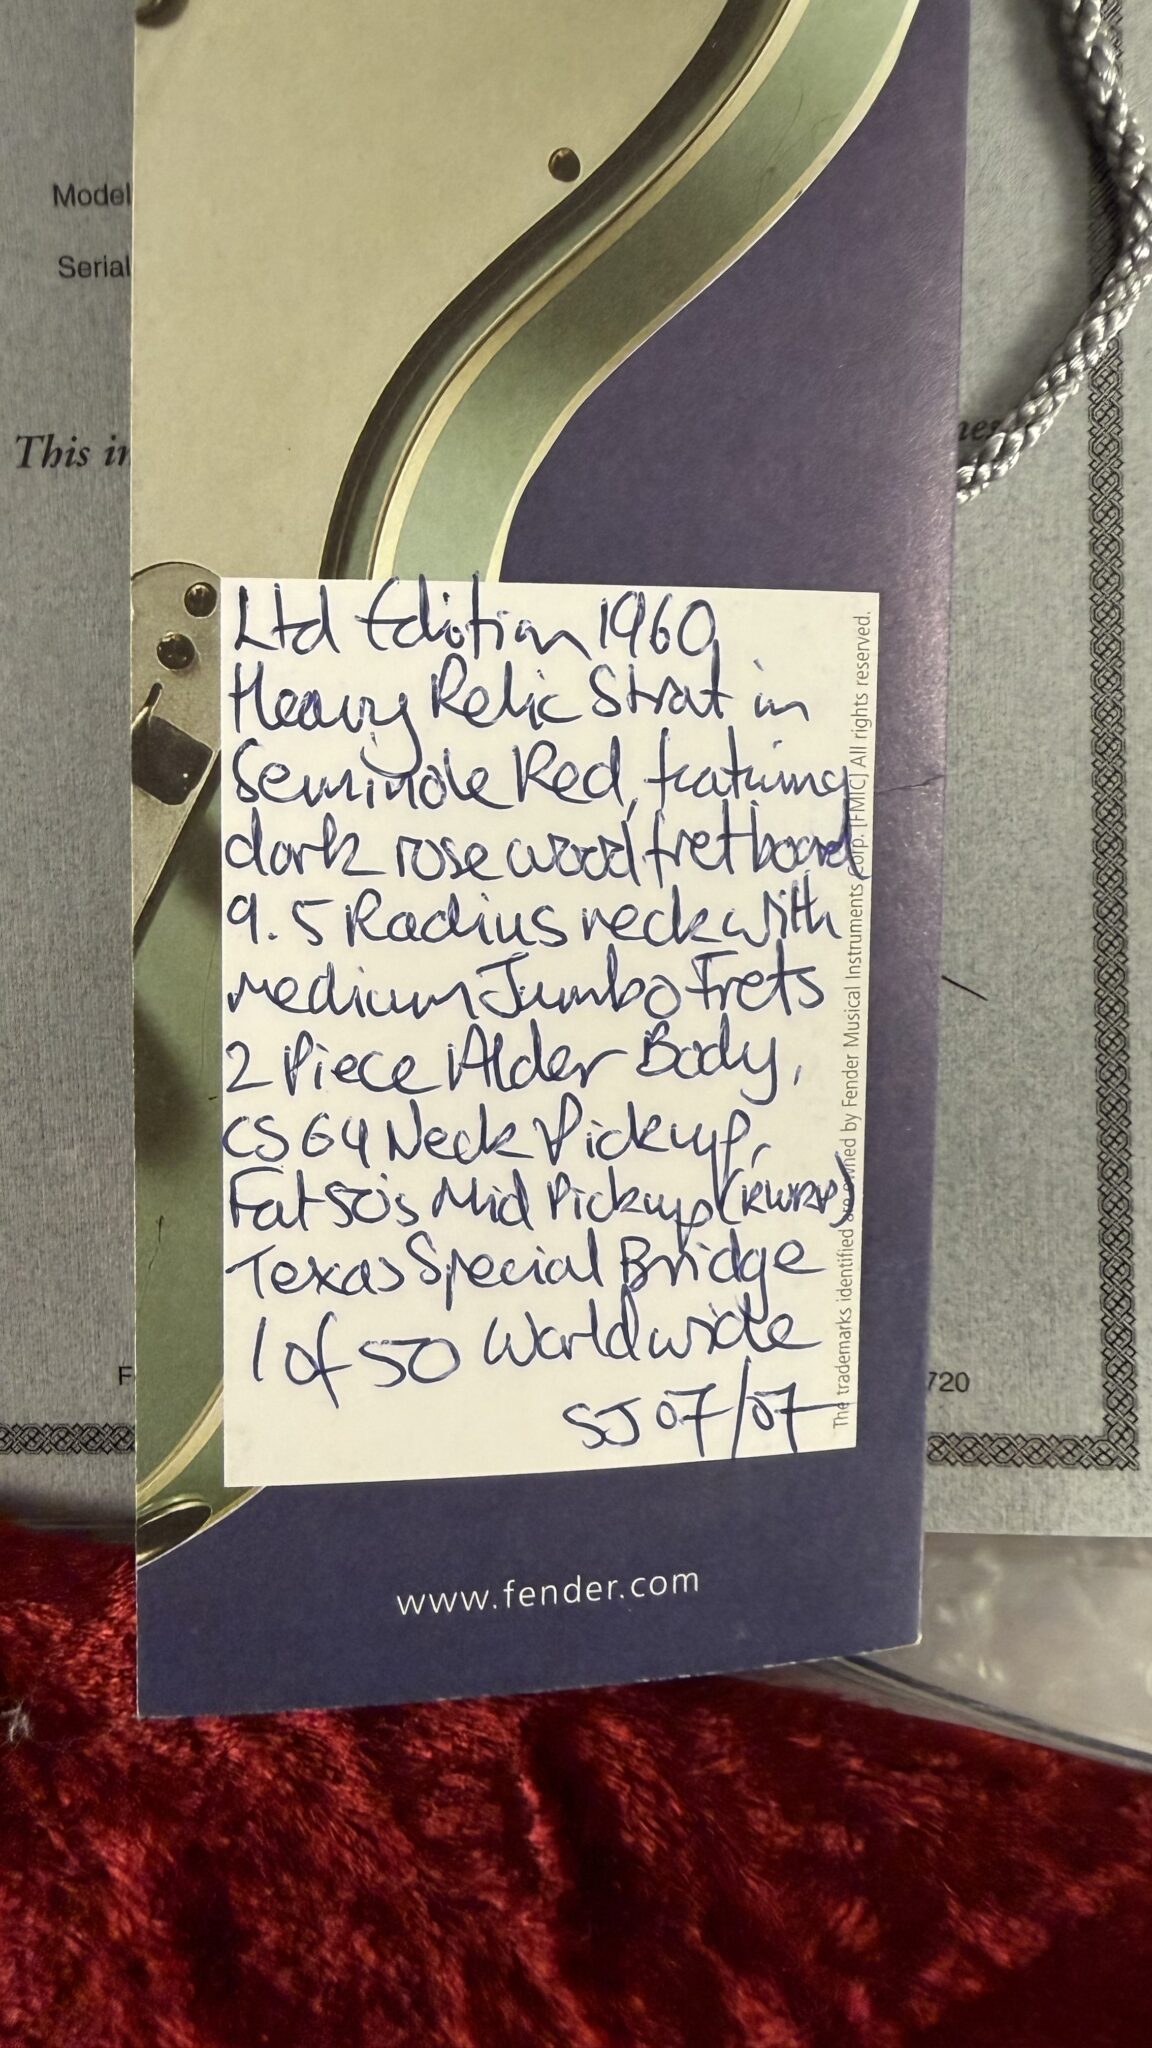 Model
Serial
This in
nes
Ltd Edition 1960
Heavy Relic Strat in
Seminole Red, featuring
dark rosewood fretboard
9.5 Radius neck with
medium Jumbo Frets
2 Piece Alder Body,
CS 64 Neck Pickup,
Fat 50's Mid Pickup (RWRP)
Texas Special Bridge
1 of 50 Worldwide
SJ 07/07
The trademarks identified are owned by Fender Musical Instruments Corp. [FMIC] All rights reserved.
F
720
www.fender.com